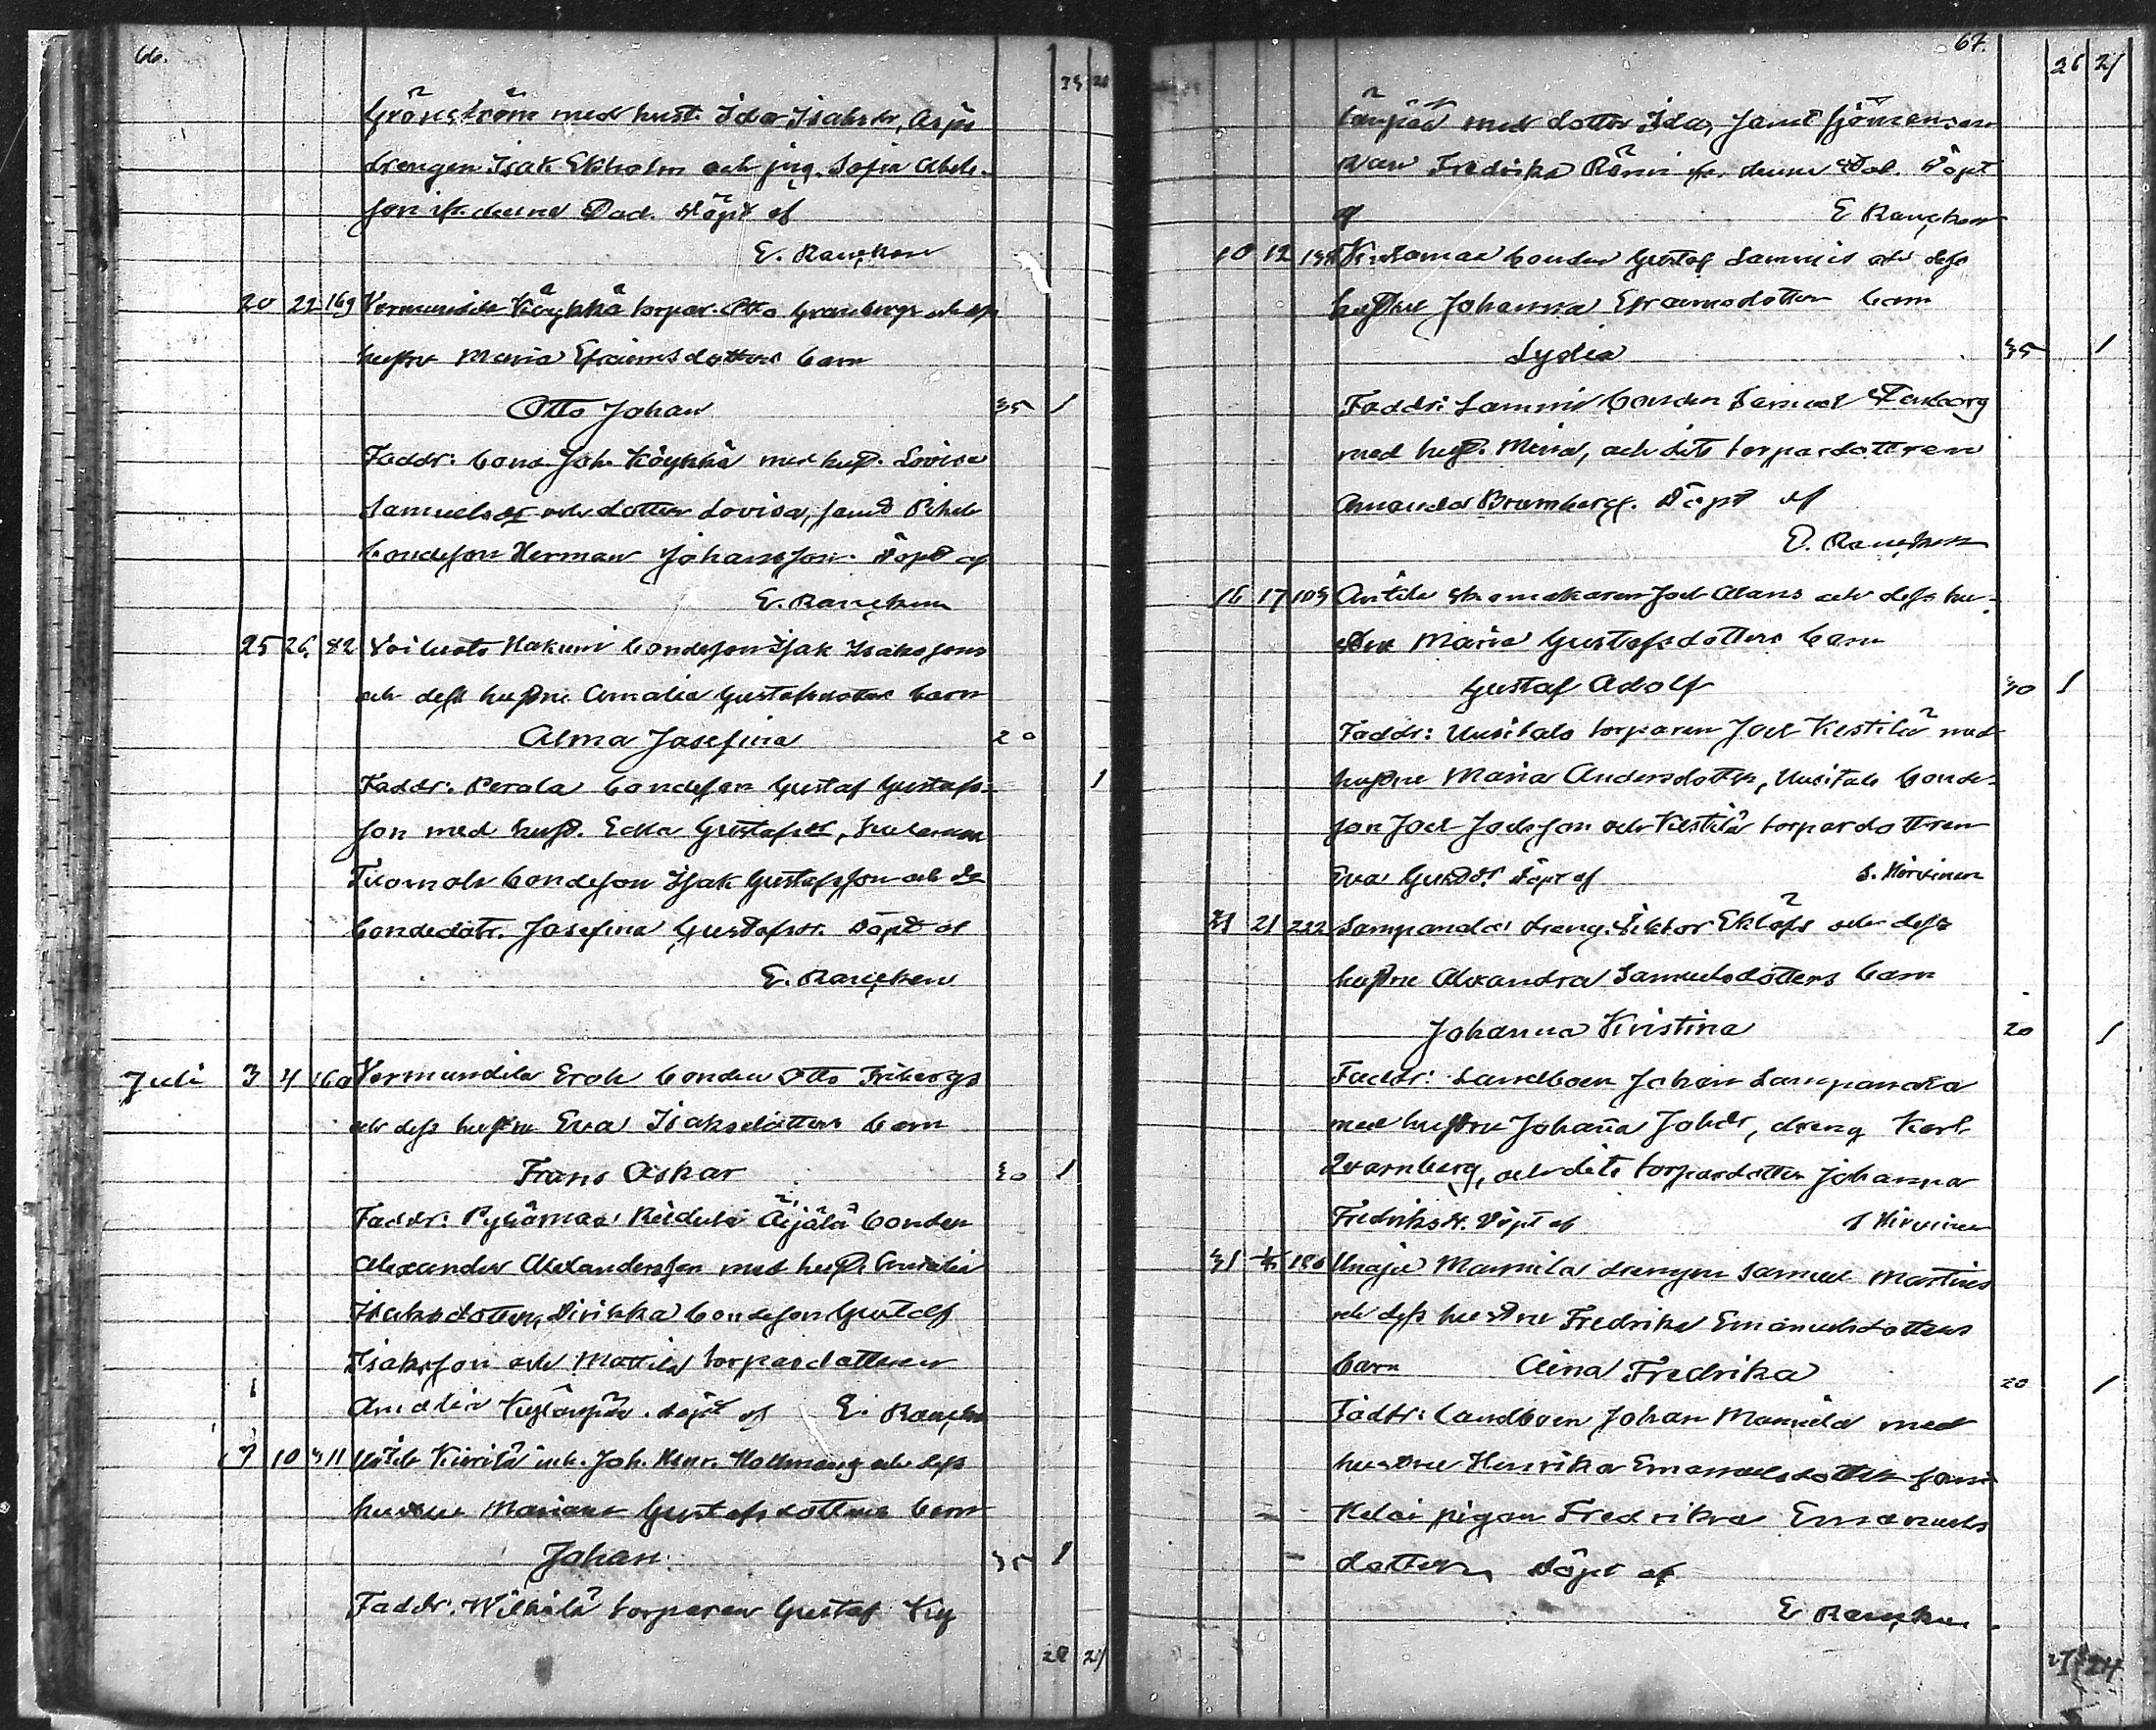 66.
23 20
Grönström med hust. Ida Isaksdr,
drengen Isak Ekholm och pig. Sofia Abels-
son ifr. denna Dad. Döpt af
E. Rancken
20 22 169 Vermuntila Köykkä torpar. Otto Granbergs och dess
hustru Maria Efraimsdotters barn
Otto Johan 35 1
Faddr: bond. Joh. Köykkä med hust. Lovisa
Samuelsdr och dotter Lovisa, samt
bondeson Herman Johansson. Döpt af
E. Rancken
25 26 82 Voiluoto Hakuni bondeson Isak Isakssons
och dess hustru Amalia Gustafsdotters barn
Alma Josefina 20
Faddr: Perala bondeson Gustaf Gustafs- 1
son med hust. Edla Gustafsdr,
Tuomola bondeson Isak Gustafsson och
bondedotr. Josefina Gustafsdr. Döpt af
E. Rancken
Juli 3 4 160 Vermundila Erola bonden Otto Fribergs
och dess hustru Eva Isaksdotters barn
Frans Oskar 30 1
Faddr: Pyhämaa Äijälä bonden
Alexander Alexandersson med hust. Amalia
Isaksdotter, bondeson Gustaf
Isaksson och Mattila torpardottren
Amalia döpt af E. Rancken
7 10 311 Kierilä inh. Joh. Henr. Hollmang och dess
hustru Mariana Gustafsdotters barn
Johan 35 1
Faddr. Wilhilä torparen Gustaf Ky
28 21
67.
28 21
länpää med dotter Ida, samt
Fredrika från denna Dad. Döpt
af E Rancken
10 12 bonden Gustaf Sammis och dess
hustru Johanna Efraimsdotters barn
Lydia 35 1
Faddr: Sammis bonden Samuel Stenborg
med hust. Miina, och dito torpardottren
Amanda Bramberg. Döpt af
E. Rancken
16 17 109 Antila skomakaren Joel Alans och dess hu-
stru Maria Gustafsdotters barn
Gustaf Adolf 30 1
Faddr: Uusitalo torparen Joel Kestilä med
hustru Maria Andersdotter, Uusitalo bonde-
son Joel Joelsson och Kestilä torpardottren
Eva Gustdr. Döpt af S. Hirvinen
21 21 222 Sampanala dreng. Viktor Eklöfs och dess
hustru Alexandra Samuelsdotters barn
Johanna Kristina 20 1
Faddr: Landboen Johan Sampanala
med hustru Johanna Johdr, dreng Karl
Qvarnberg, och dito torpardotter Johanna
Fredriksdr. Döpt af S Hirvinen
31 186 Unaja Mannila drengen Samuel Martins
och dess hustru Fredrika Emanuelsdotters
barn Aina Fredrika 20 1
Faddr: landboen Johan Mannila med
hustru Henrika Emanuelsdotter samt
Kelai pigan Fredrika Emanuels
dotter, Döpt af
E Rancken
27 24